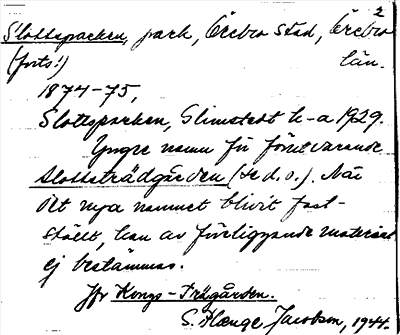 2
Slottsparken, park, Örebro stad, Örebro
(forts.) län.
1874-75,
Slottsparken, Glimstedt k-a 1929.
Yngre namn för förutvarande
slottsträdgården (se d. o.). När
det nya namnet blivit fast-
ställt, kan av föreliggande material
ej bestämmas.
Jfr Kongs-Trägården.
S. Hænge Jacobson, 1944.